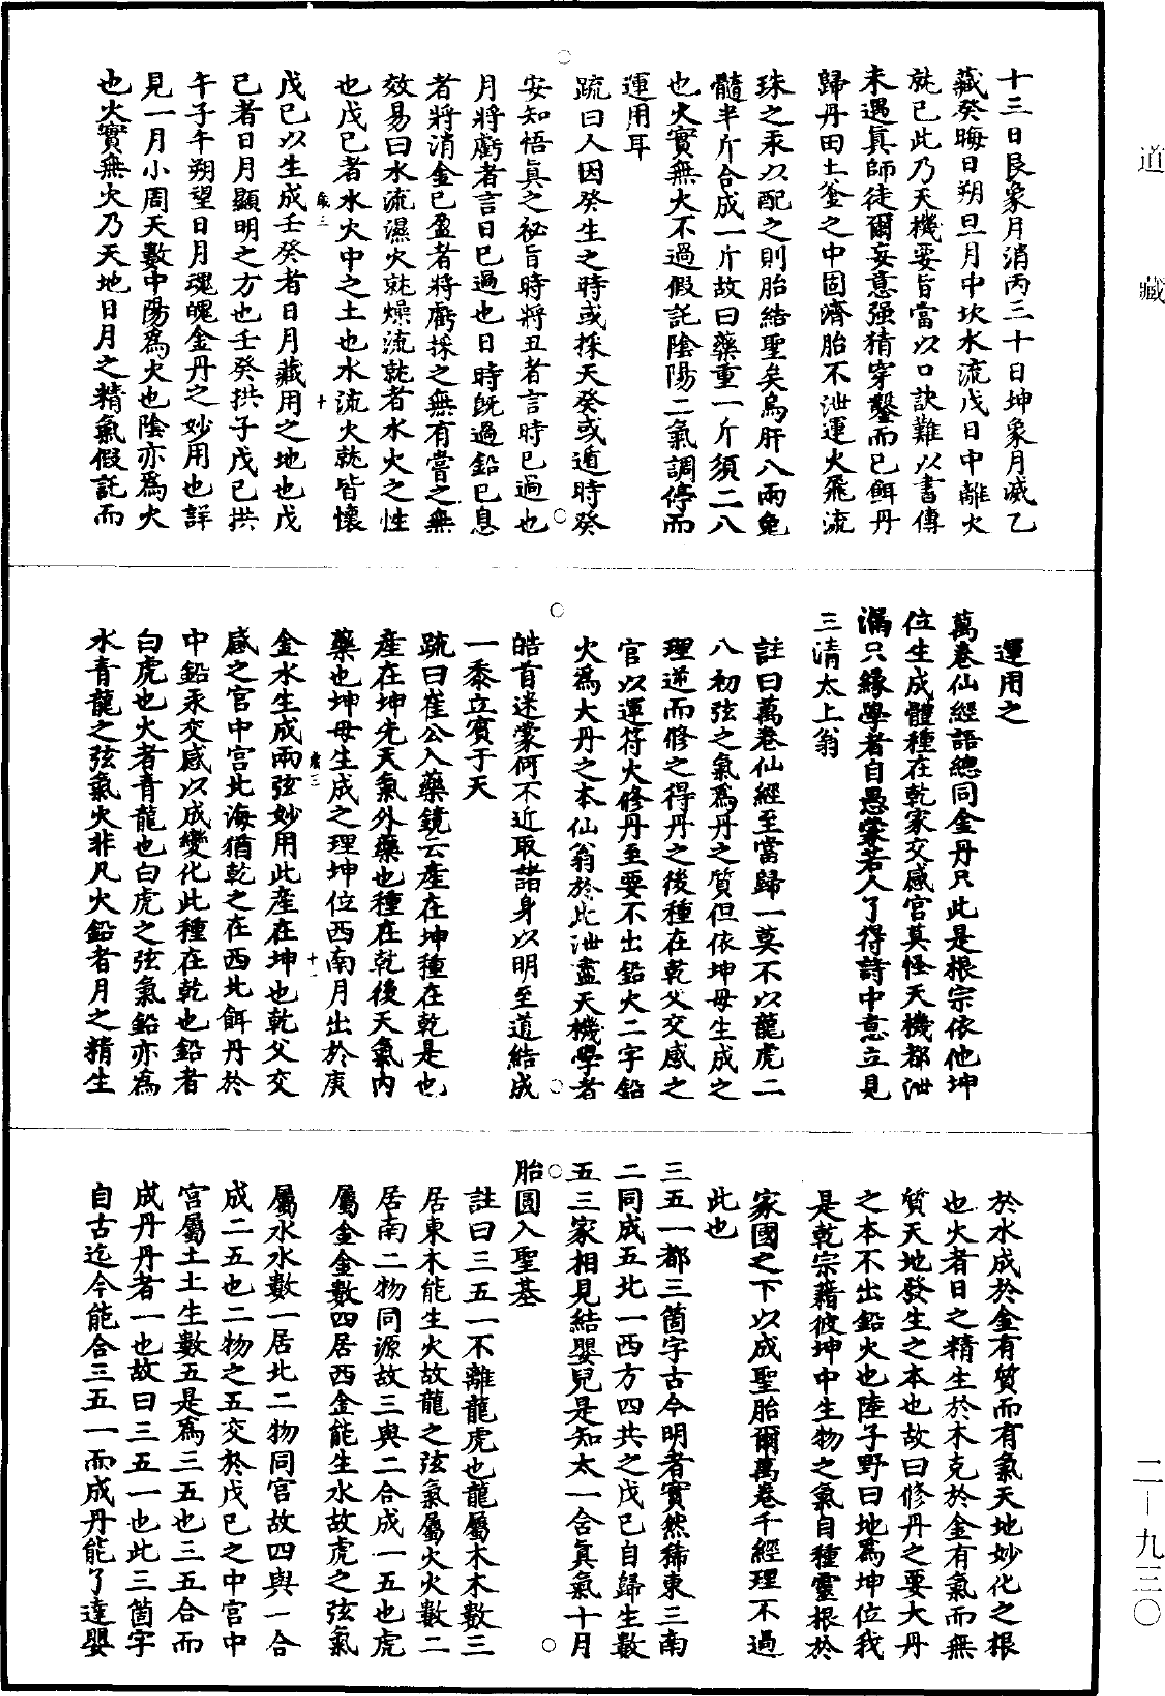 道藏
十三日艮象月消丙三十日坤象月滅乙
藏癸晦日朔旦月中坎水流戊日中離火
就已此乃天機要旨當以口訣難以書傳
未遇真師徒爾妄意强猜穿鑿而已餌丹
歸丹田土釜之中固濟胎不泄運火飛流
珠之汞以配之則胎結聖矣烏肝八兩兔
髓半斤合成一斤故曰藥重一斤須二八
也火實無火不過假託陰陽二氣調停而
運用耳
疏曰人因癸生之時或採天癸或遁時癸
安知悟真之祕旨時將丑者言時已過也
月將虧者言日已過也日時旣過鉛已息
者將消金已盈者將虧採之無有嘗之無
效易曰水流濕火就燥流就者水火之性
也戊已者水火中之土也水流火就皆懷
戊已以生成壬癸者日月藏用之地也戊
已者日月顯明之方也壬癸拱子戊已拱
午子午朔望日月魂魄金丹之妙用也詳
見一月小周天數中陽爲火也陰亦爲火
也火實無火乃天地日月之精氣假託而
運用之
萬卷仙經語總同金丹只此是根宗依他坤
位生成體種在乾家交感宫莫怪天機都泄
漏只緣學者自愚蒙若人了得詩中意立見
三清太上翁
註曰萬卷仙經至當歸一莫不以龍虎二
八初弦之氣爲丹之質但依坤母生成之
理逆而修之得丹之後種在乾父交感之
宫以運符火修丹至要不出鉛火二字鉛
火爲大丹之本仙翁於此泄盡天機學者
皓首迷蒙何不近取諸身以明至道結成
一黍立賓于天
疏曰崔公入藥鏡云產在坤種在乾是也
產在坤先天氣外藥也種在乾後天氣内
藥也坤母生成之理坤位西南月出於庚
金水生成兩弦妙用此產在坤也乾父交
感之宫中宫北海猶乾之在西北餌丹於
中鉛汞交感以成變化此種在乾也鉛者
白虎也火者青龍也白虎之弦氣鉛亦爲
水青龍之弦氣火非凡火鉛者月之精生
於水成於金有質而有氣天地妙化之根
也火者日之精生於木克於金有氣而無
質天地發生之本也故曰修丹之要大丹
之本不出鉛火也陸子野曰地爲坤位我
是乾宗藉彼坤中生物之氣自種靈根於
家國之下以成聖胎爾萬卷千經理不過
此也
三五一都三箇字古今明者實然稀東三南
二同成五北一西方四共之戊已自歸生數
五三家相見結嬰兒是知太一含真氣十月
胎圓入聖基
註曰三五一不離龍虎也龍屬木木數三
居東木能生火故龍之弦氣屬火火數二
居南二物同源故三與二合成一五也虎
屬金金數四居西金能生水故虎之弦氣
屬水水數一居北二物同宫故四與一合
成二五也二物之五交於戊已之中宫中
宫屬土土生數五是爲三五也三五合而
成丹丹者一也故曰三五一也此三箇字
自古迄今能合三五一而成丹能了達嬰
二—九三〇